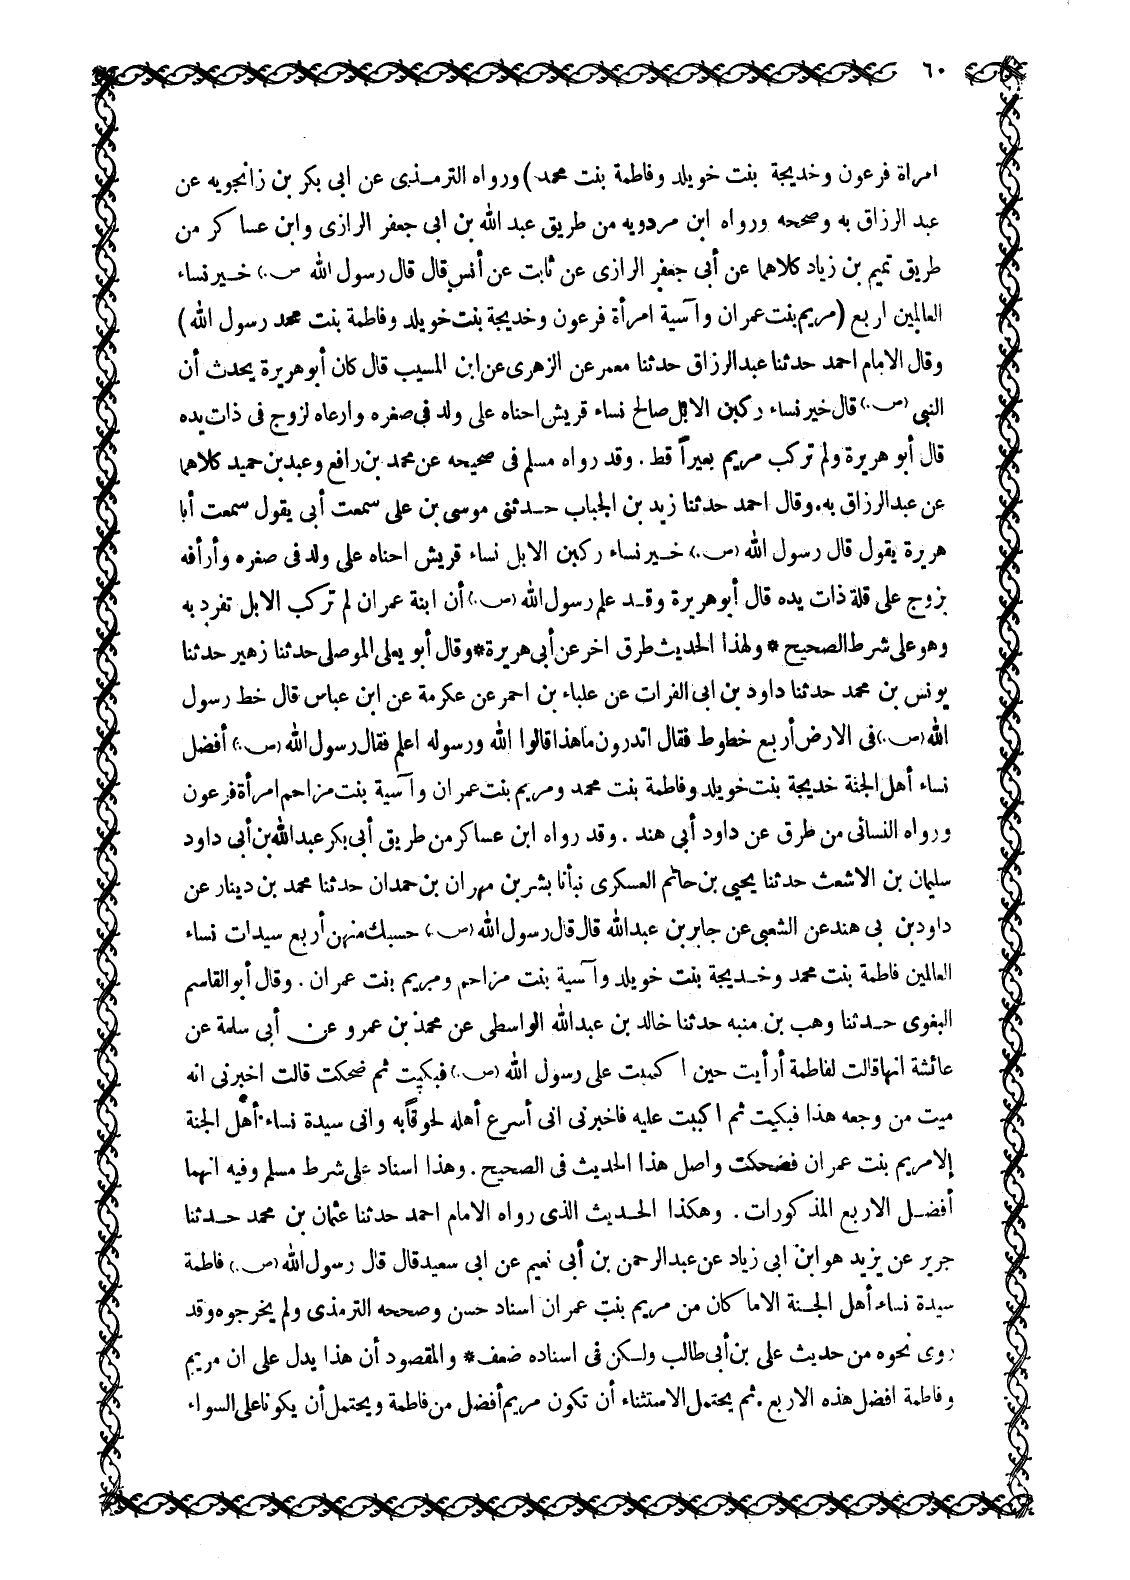 ٦٠
امراة فرعون وخديجة بنت خويلد وفاطمة بنت محمد) ورواه الترمذى عن ابى بكر بن زانجويه عن
عبد الرزاق به وصححه ورواه ابن مردويه من طريق عبد الله بن ابى جعفر الرازى وابن عساكر من
طريق تميم بن زياد كلاهما عن أبى جعفر الرازى عن ثابت عن أنس قال قال رسول الله (ص.) خير نساء
العالمين اربع (مريم بنت عمران وآسية امرأة فرعون وخديجة بنت خويلد وفاطمة بنت محمد رسول الله)
وقال الامام احمد حدثنا عبدالرزاق حدثنا معمر عن الزهرى عن ابن المسيب قال كان أبو هريرة يحدث أن
النبي (ص.) قال خير نساء ركبن الابل صالح نساء قريش احناه على ولد فى صغره وارعاه لزوج فى ذات يده
قال أبو هريرة ولم تركب مريم بعيراً قط . وقد رواه مسلم فى صحيحه عن محمد بن رافع وعبد بن حميد كلاهما
عن عبدالرزاق به. وقال احمد حدثنا زيد بن الحباب حدثنى موسى بن على سمعت أبى يقول سمعت أبا
هريرة يقول قال رسول الله (ص.) خير نساء ركبن الابل نساء قريش احناه على ولد فى صغره وأرأفه
بزوج على قلة ذات يده قال أبو هريرة وقد علم رسول الله (ص.) أن ابنة عمران لم تركب الابل تفرد به
وهو على شرط الصحيح * ولهذا الحديث طرق اخر عن أبى هريرة* وقال أبو يعلى الموصلى حدثنا زهير حدثنا
يونس بن محمد حدثنا داود بن ابى الفرات عن علباء بن احمر عن عكرمة عن ابن عباس قال خط رسول
الله (ص.) فى الارض أربع خطوط فقال اتدرون ماهذا قالوا الله ورسوله اعلم فقال رسول الله (ص.) أفضل
نساء أهل الجنة خديجة بنت خويلد وفاطمة بنت محمد ومريم بنت عمران وآسية بنت مزاحم امرأة فرعون
ورواه النسائى من طرق عن داود أبى هند . وقد رواه ابن عساكر من طريق أبى بكر عبدالله بن أبى داود
سليمان بن الاشعث حدثنا يحيى بن حاتم العسكرى نبأنا بشر بن مهران بن حمدان حدثنا محمد بن دينار عن
داود بن بى هند عن الشعبى عن جابر بن عبدالله قال قال رسول الله (ص.) حسبك منهن أربع سيدات نساء
العالمين فاطمة بنت محمد وخديجة بنت خويلد وآسية بنت مزاحم ومريم بنت عمران . وقال أبو القاسم
البغوى حدثنا وهب بن منبه حدثنا خالد بن عبدالله الواسطى عن محمد بن عمرو عن أبى سلمة عن
عائشة انها قالت لفاطمة أرأيت حين اكببت على رسول الله (ص.) فبكيت ثم ضحكت قالت اخبرنى انه
ميت من وجعه هذا فبكيت ثم اكببت عليه فاخبرنى انى أسرع أهله لحوقاً به وانى سيدة نساء أهل الجنة
إلا مريم بنت عمران فضحكت واصل هذا الحديث فى الصحيح . وهذا اسناد على شرط مسلم وفيه انهما
أفضل الاربع المذكورات . وهكذا الحديث الذى رواه الامام احمد حدثنا عثمان بن محمد حدثنا
جرير عن يزيد هو ابن ابى زياد عن عبدالرحمن بن أبى نعيم عن ابى سعيد قال قال رسول الله (ص.) فاطمة
سيدة نساء أهل الجنة الا ما كان من مريم بنت عمران اسناد حسن وصححه الترمذى ولم يخرجوه وقد
روى نحوه من حديث على بن أبى طالب ولكن فى اسناده ضعف* والمقصود أن هذا يدل على ان مريم
وفاطمة افضل هذه الاربع . ثم يحتمل الاستثناء أن تكون مريم أفضل من فاطمة ويحتمل أن يكونا على السواء